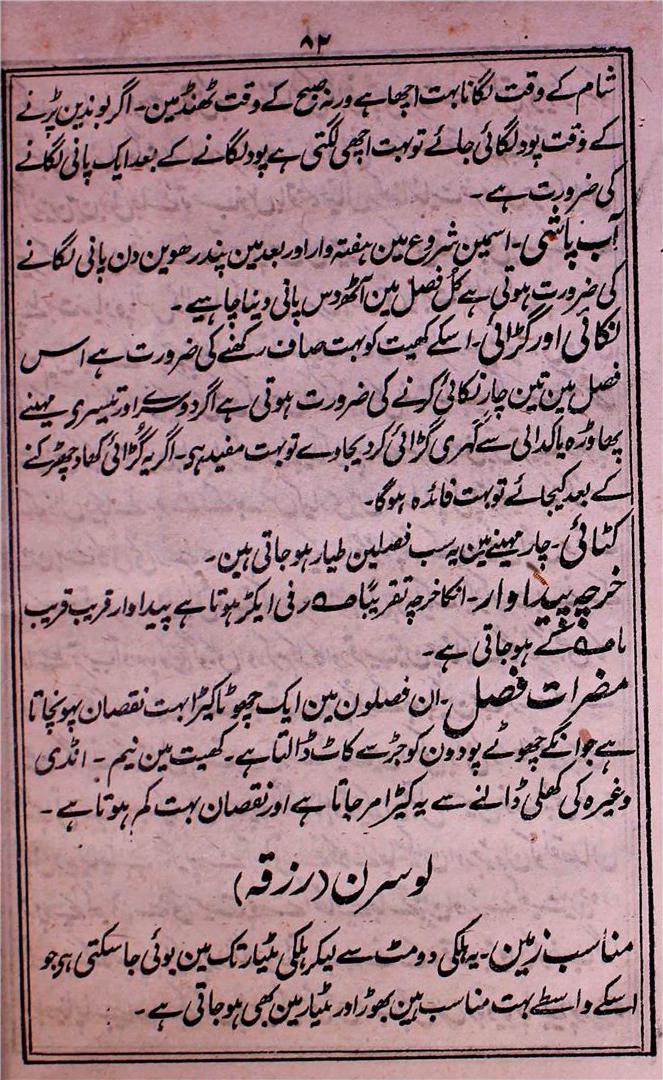 ۸۲
شام کے وقت لگانا بہت اچھا ہے ورنہ صبح کے وقت ٹھنڈمین۔ اگر بوندین پڑنے
کے وقت پود لگائی جائے تو بہت اچھی لگتی ہے پود لگانے کے بعد ایک پانی لگانے
کی ضرورت ہے۔
آب پاشی۔ اسمین شروع مین ہفتہ وار اور بعد مین پندرھوین دن پانی لگانے
کی ضرورت ہوتی ہے کل فصل مین آٹھ دس پانی دینا چاہیے۔
نکائی اور گڑائی۔ اسکے کھیت کو بہت صاف رکھنے کی ضرورت ہے اس
فصل مین تین چار نکائی کرنے کی ضرورت ہوتی ہے اگر دوسرے اور تیسری مہینے
پھاوڑہ یا کدالی سے گہری گڑائی کردیجاوے تو بہت مفید ہی۔ اگر یہ گڑائی کھاد چھڑکنے
کے بعد کیجائے تو بہت فائدہ ہوگا۔
کٹائی۔ چار مہینے مین یہ سب فصلین طیار ہوجاتی ہین۔
خرچہ پیداوار۔ انکا خرچہ تقریباً فی ایکڑ ہوتا ہے پیداوار قریب قریب
کے ہوجاتی ہے۔
مضرات فصل۔ ان فصلون مین ایک چھوٹا کیڑا بہت نقصان پہونچاتا
ہے جو انکے چھوٹے پودون کو جڑ سے کاٹ ڈالتا ہے۔ کھیت مین نیم۔ انڈی
وغیرہ کی کھلی ڈالنے سے یہ کیڑا مر جاتا ہے اور نقصان بہت کم ہوتا ہے۔
لوسرن (رزقہ)
مناسب زمین۔ یہ ہلکی دومٹ سے لیکر ہلکی مٹیار تک مین بوئی جاسکتی ہی جو
اسکے واسطے بہت مناسب ہین بھوڑ اور مٹیار مین بھی ہوجاتی ہے۔